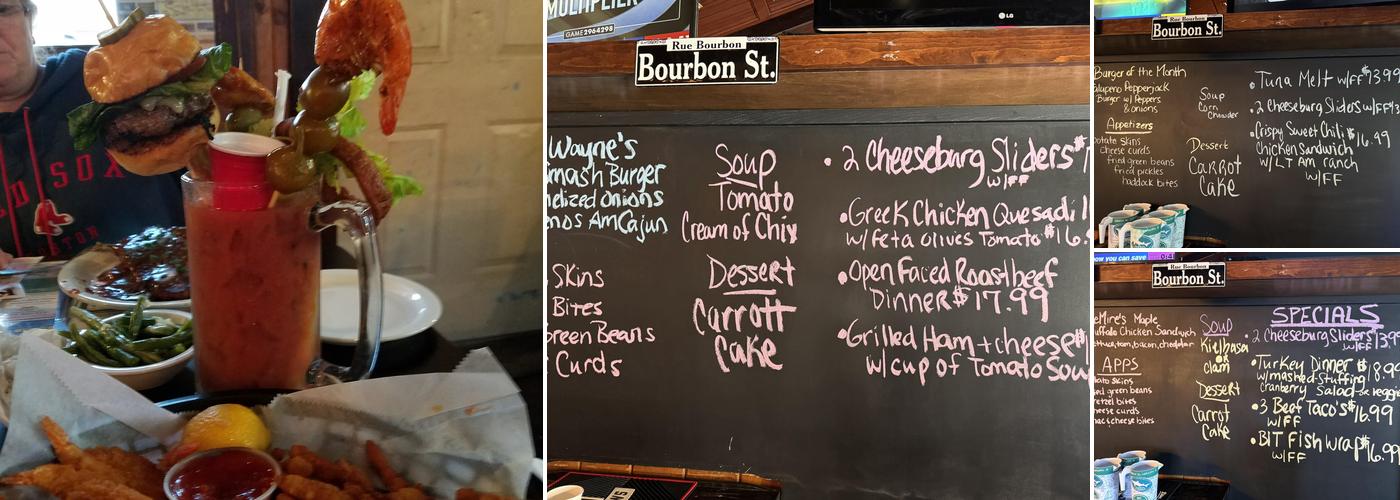 D SOX
STON
MULTIPLIER
GAME2964298
LG
Rue Bourbon
Bourbon St.
Wayne's
mash Burger
nelized onions
enos AmCajun
Skins
Bites
Green Beans
Curds
Soup
Tomato
Cream of Chix
Dessert
Carrott
Cake
• 2 Cheeseburg Sliders $1
w/FF
• Greek Chicken Quesadil
w/Feta olives Tomato $16.
• Open Faced Roastbeef
Dinner $17.99
• Grilled Ham + cheese
w/cup of Tomato Sou
Rue Bourbon
Bourbon St.
Burger of the Month
alapeno Pepperjack
Burger w/ Peppers
& onions
Appetizers
otato Skins
Cheese curds
fried green beans
fried pickles
haddock bites
Soup
Corn
Chowder
Dessert
Carrot
Cake
• Tuna Melt w/FF $13.99
• 2 Cheeseburg Sliders w/FF $13
• Crispy Sweet Chili $16.49
Chicken Sandwich
w/LT Am ranch
w/FF
how you can save
Rue Bourbon
Bourbon St.
eMire's Maple
uffalo Chicken Sandwich
ettuce, tom, bacon, cheddar
APPS
tato skins
ied green beans
retzel bites
heese curds
mac & cheese bites
Soup
Kielbasa
or
clam
Dessert
Carrot
Cake
SPECIALS
• 2 Cheeseburg Sliders
w/FF $13.9
• Turkey Dinner $18.99
w/mashed-Stuffing
Cranberry Salad or veggi
• 3 Beef Taco's $16.99
w/FF
• BLT Fish wrap $16.99
w/FF